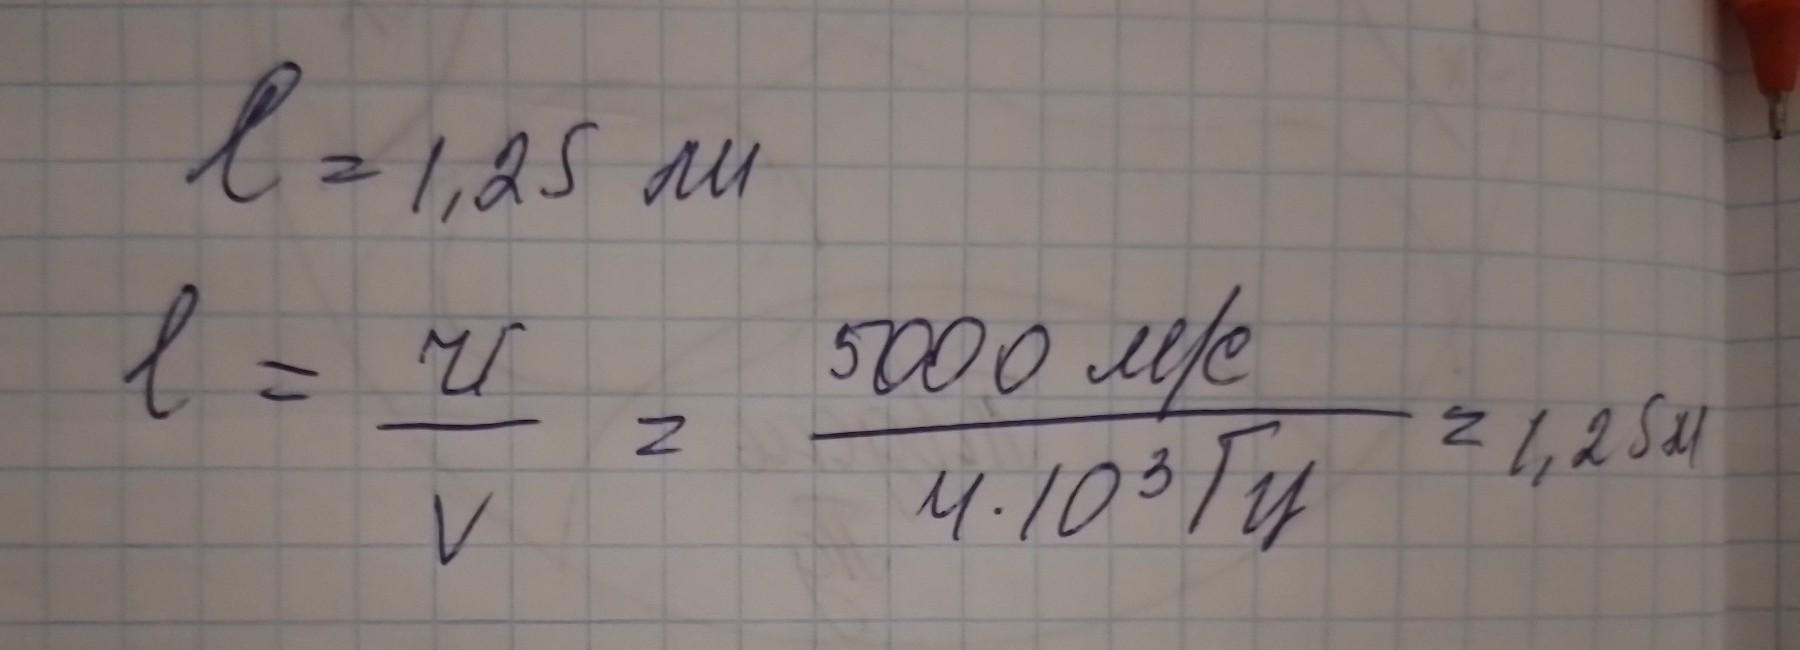 l = 1,25 м
l = υ/ν = 5000 м/с / 4·10³ Гц = 1,25м